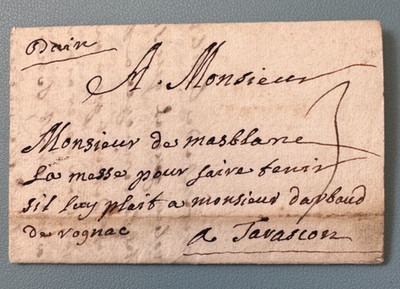 Dain
A. Monsieur
Monsieur de masblanc 3
la messe pour faire tenir
sil luy plait a monsieur darbaud
de rognac a Tarascon